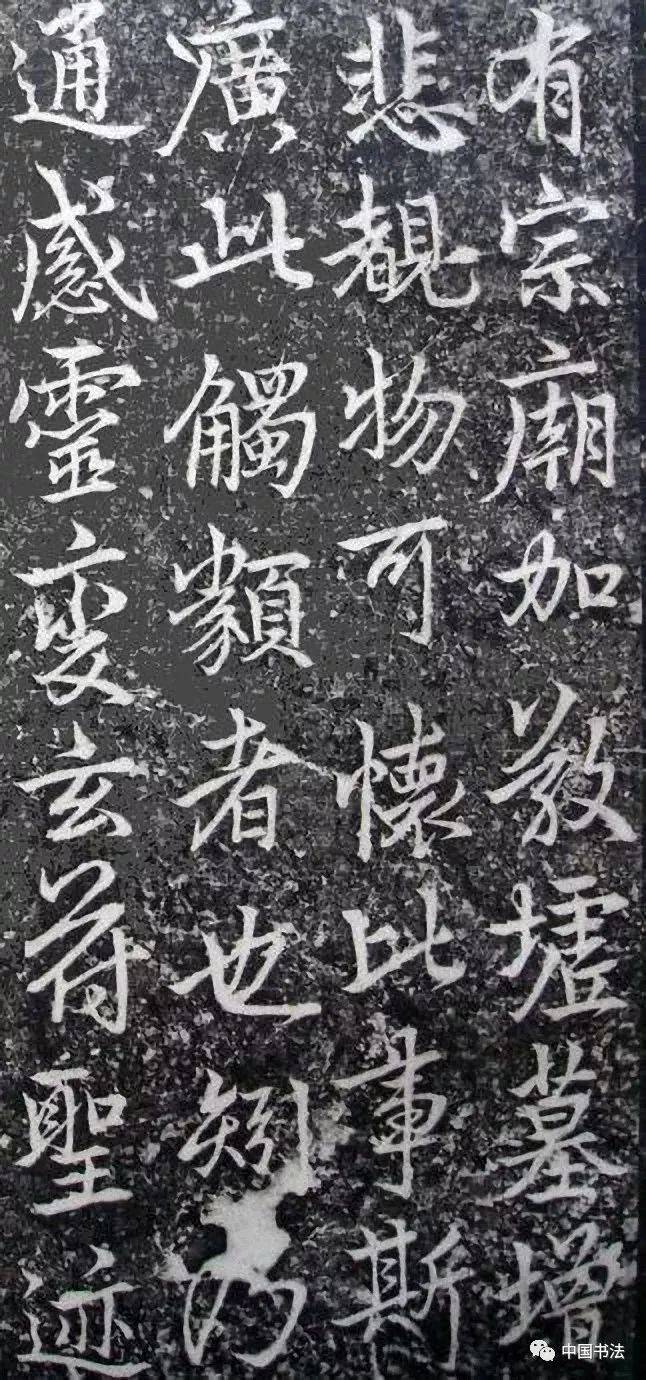 有宗廟加敬墟墓增
悲覩物可懷比事斯
廣此觸類者也矧乃
通感靈變玄符聖迹
中国书法